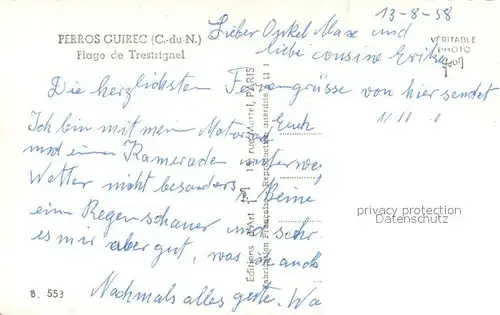 13-8-58
PERROS GUIREC (C.-du-N.)
Plage de Trestrignel
VÉRITABLE
PHOTO
Lieber Onkel Max und
liebe cousine Erika
Die herzlichsten Feriengrüsse von hier sendet
Euch
Ich bin mit mein Motorrad
und einem Kameraden unterwegs
Wetter nicht besonders. Beine
ein Regenschauer und sehr
es mir aber gut, was ich auch
Nochmals alles gute. Wa
Editions d'Art
PARIS
Fabrication Française - Reproduction interdite
B. 553
privacy protection
Datenschutz